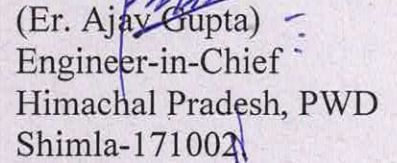 (Er. Ajay Gupta)
Engineer-in-Chief
Himachal Pradesh, PWD
Shimla-171002